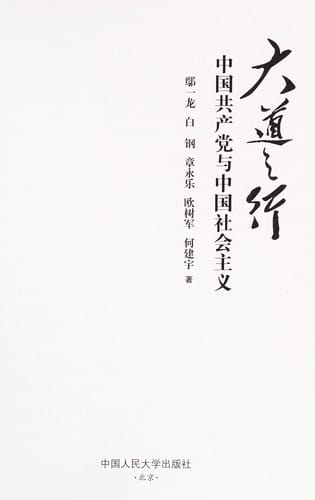 大道之行
中国共产党与中国社会主义
鄢一龙 白 钢 章永乐 欧树军 何建宇 著
中国人民大学出版社
·北京·